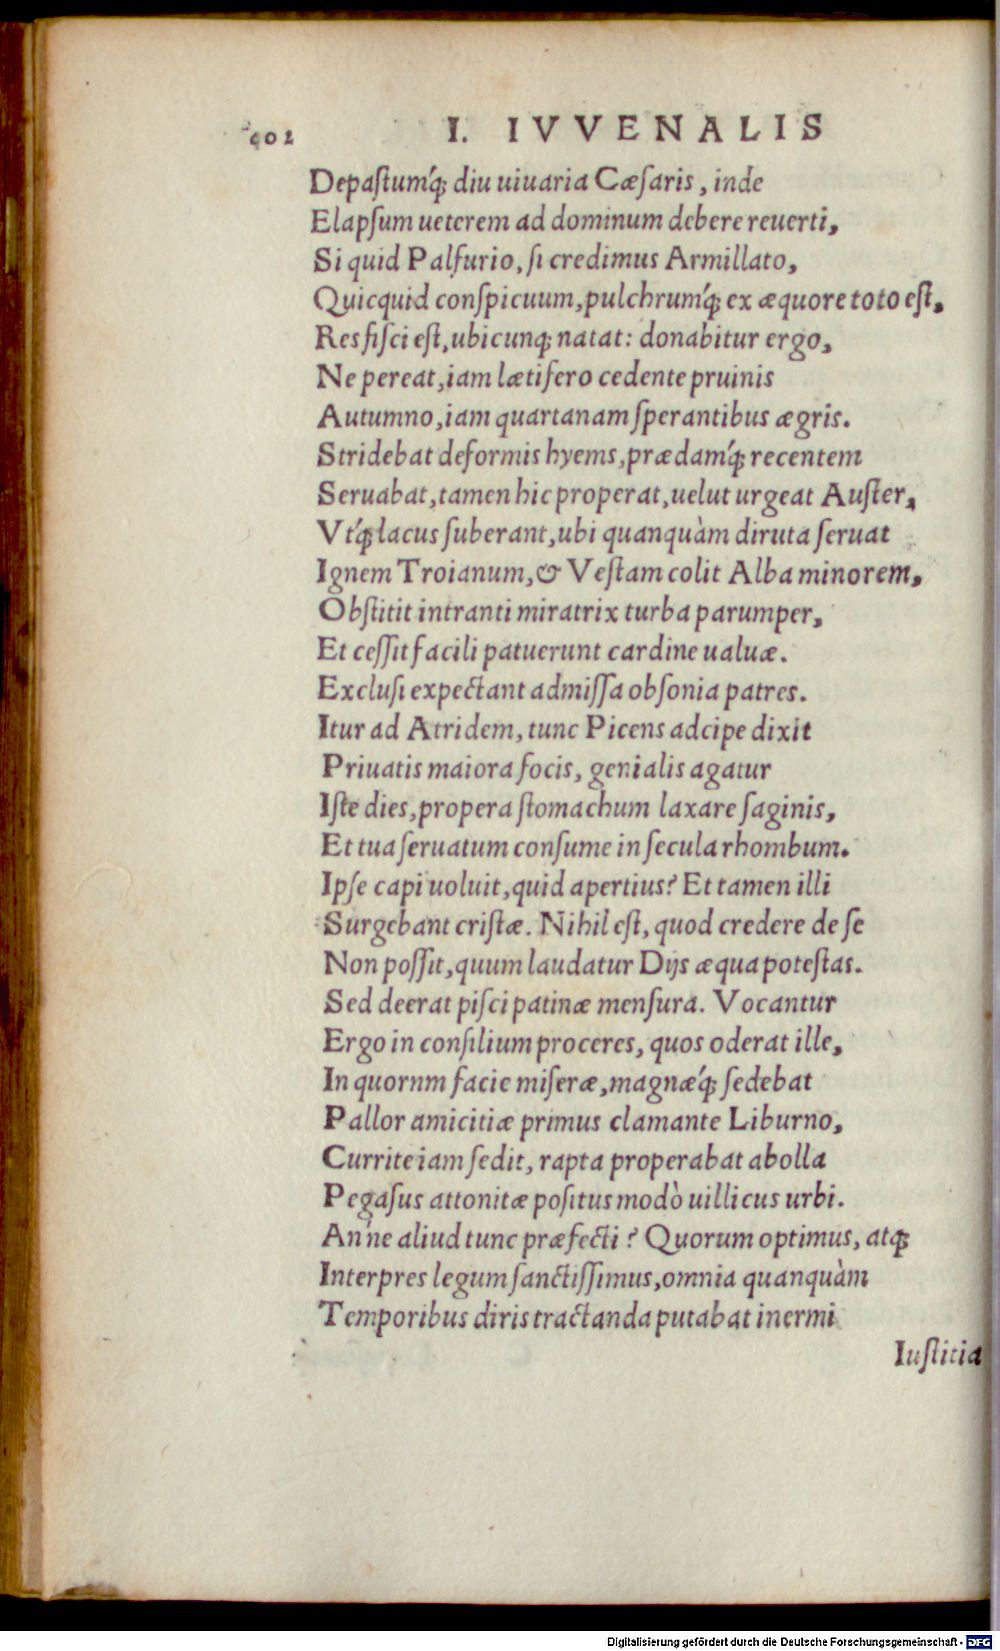 402 I. IVVENALIS
Depaſtumq́; diu uiuaria Cæſaris, inde
Elapſum ueterem ad dominum debere reuerti,
Si quid Palfurio, ſi credimus Armillato,
Quicquid conſpicuum, pulchrumq́; ex æquore toto eſt,
Res fiſci eſt, ubicunq; natat: donabitur ergo,
Ne pereat, iam lætifero cedente pruinis
Autumno, iam quartanam ſperantibus ægris.
Stridebat deformis hyems, prædamq́; recentem
Seruabat, tamen hic properat, uelut urgeat Auſter,
Vtq́; lacus ſuberant, ubi quanquàm diruta ſeruat
Ignem Troianum, & Veſtam colit Alba minorem,
Obſtitit intranti miratrix turba parumper,
Et ceſſit facili patuerunt cardine ualuæ.
Excluſi expectant admiſſa obſonia patres.
Itur ad Atridem, tunc Picens adcipe dixit
Priuatis maiora focis, genialis agatur
Iſte dies, propera ſtomachum laxare ſaginis,
Et tua ſeruatum conſume in ſecula rhombum.
Ipſe capi uoluit, quid apertius? Et tamen illi
Surgebant criſtæ. Nihil eſt, quod credere de ſe
Non poſſit, quum laudatur Dijs æqua poteſtas.
Sed deerat piſci patinæ menſura. Vocantur
Ergo in conſilium proceres, quos oderat ille,
In quornm facie miſeræ, magnæq́; ſedebat
Pallor amicitiæ primus clamante Liburno,
Currite iam ſedit, rapta properabat abolla
Pegaſus attonitæ poſitus modò uillicus urbi.
An'ne aliud tunc præfecti? Quorum optimus, atq;
Interpres legum ſanctiſſimus, omnia quanquàm
Temporibus diris tractanda putabat inermi
Iuſtitia
Digitalisierung gefördert durch die Deutsche Forschungsgemeinschaft - DFG